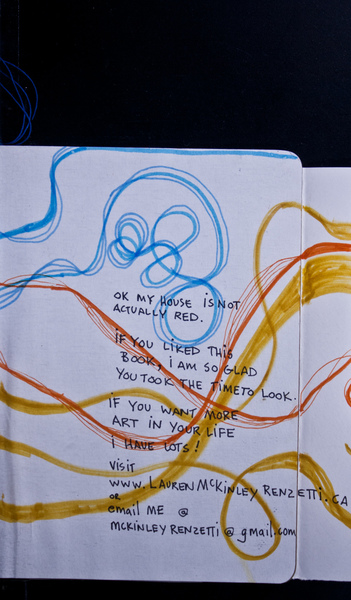 OK MY HOUSE IS NOT
ACTUALLY RED.
IF YOU LIKED THIS
BOOK, I AM SO GLAD
YOU TOOK THE TIME TO LOOK.
IF YOU WANT MORE
ART IN YOUR LIFE
I HAVE LOTS!
VISIT
WWW.LAURENMCKINLEYRENZETTI.CA
OR
email ME @
MCKINLEYRENZETTI@gmail.com